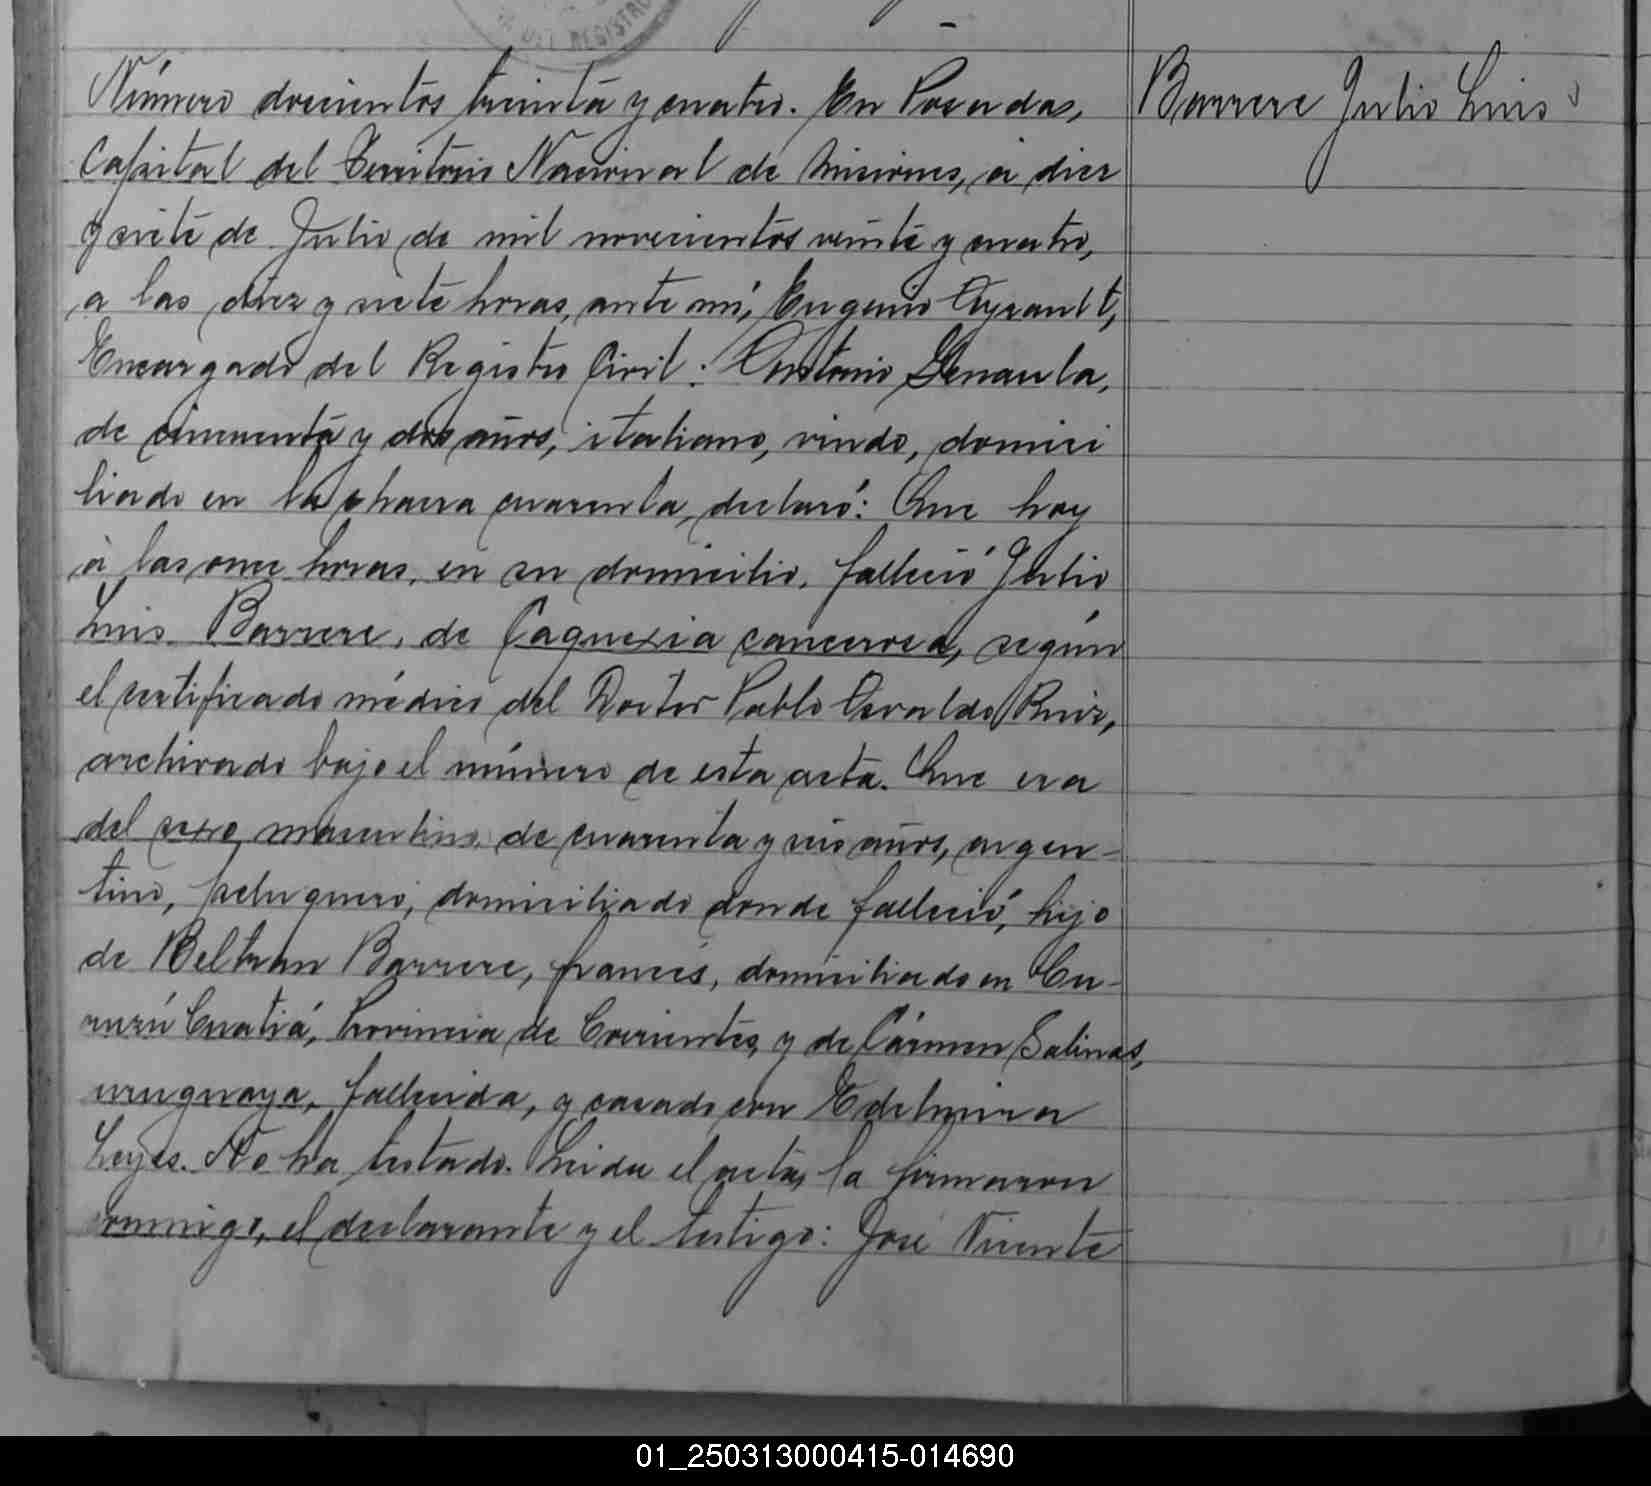 DEL REGISTRO
Número doscientos treinta y cuatro. En Posadas,
Barrere Julio Luis
Capital del Territorio Nacional de Misiones, á diez
y siete de Julio de mil novecientos veinte y cuatro,
a las diez y siete horas, ante mí, Eugenio Ayrault,
Encargado del Registro Civil: Antonio
de cincuenta y dos años, italiano, viudo, domici
liado en la chacra cuarenta, declaró: Que hoy
á las once horas, en su domicilio, falleció Julio
Luis Barrere, de Caquexia cancerosa, según
el certificado médico del Doctor Pablo Osvaldo Ruiz,
archivado bajo el número de esta acta. Que era
del sexo masculino, de cuarenta y seis años, argen-
tino, peluquero, domiciliado donde falleció, hijo
de Beltran Barrere, francés, domiciliado en Cu-
ruzú Cuatiá, Provincia de Corrientes, y de Cármen Salinas,
uruguaya, fallecida, y casado con Edelmira
Leyes. No ha testado. Leida el acta, la firmaron
conmigo, el declarante y el testigo: José Vicente
01_250313000415-014690